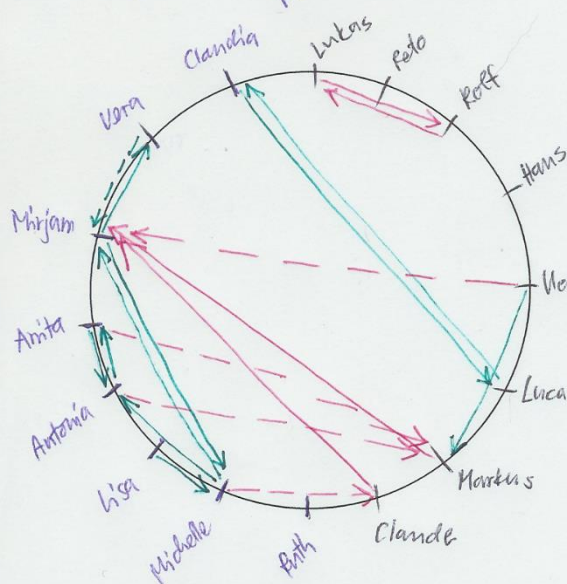 Lukas
Reto
Rolf
Hans
Luca
Markus
Claude
Ruth
Michelle
Lisa
Antonia
Anita
Mirjam
Vera
Claudia